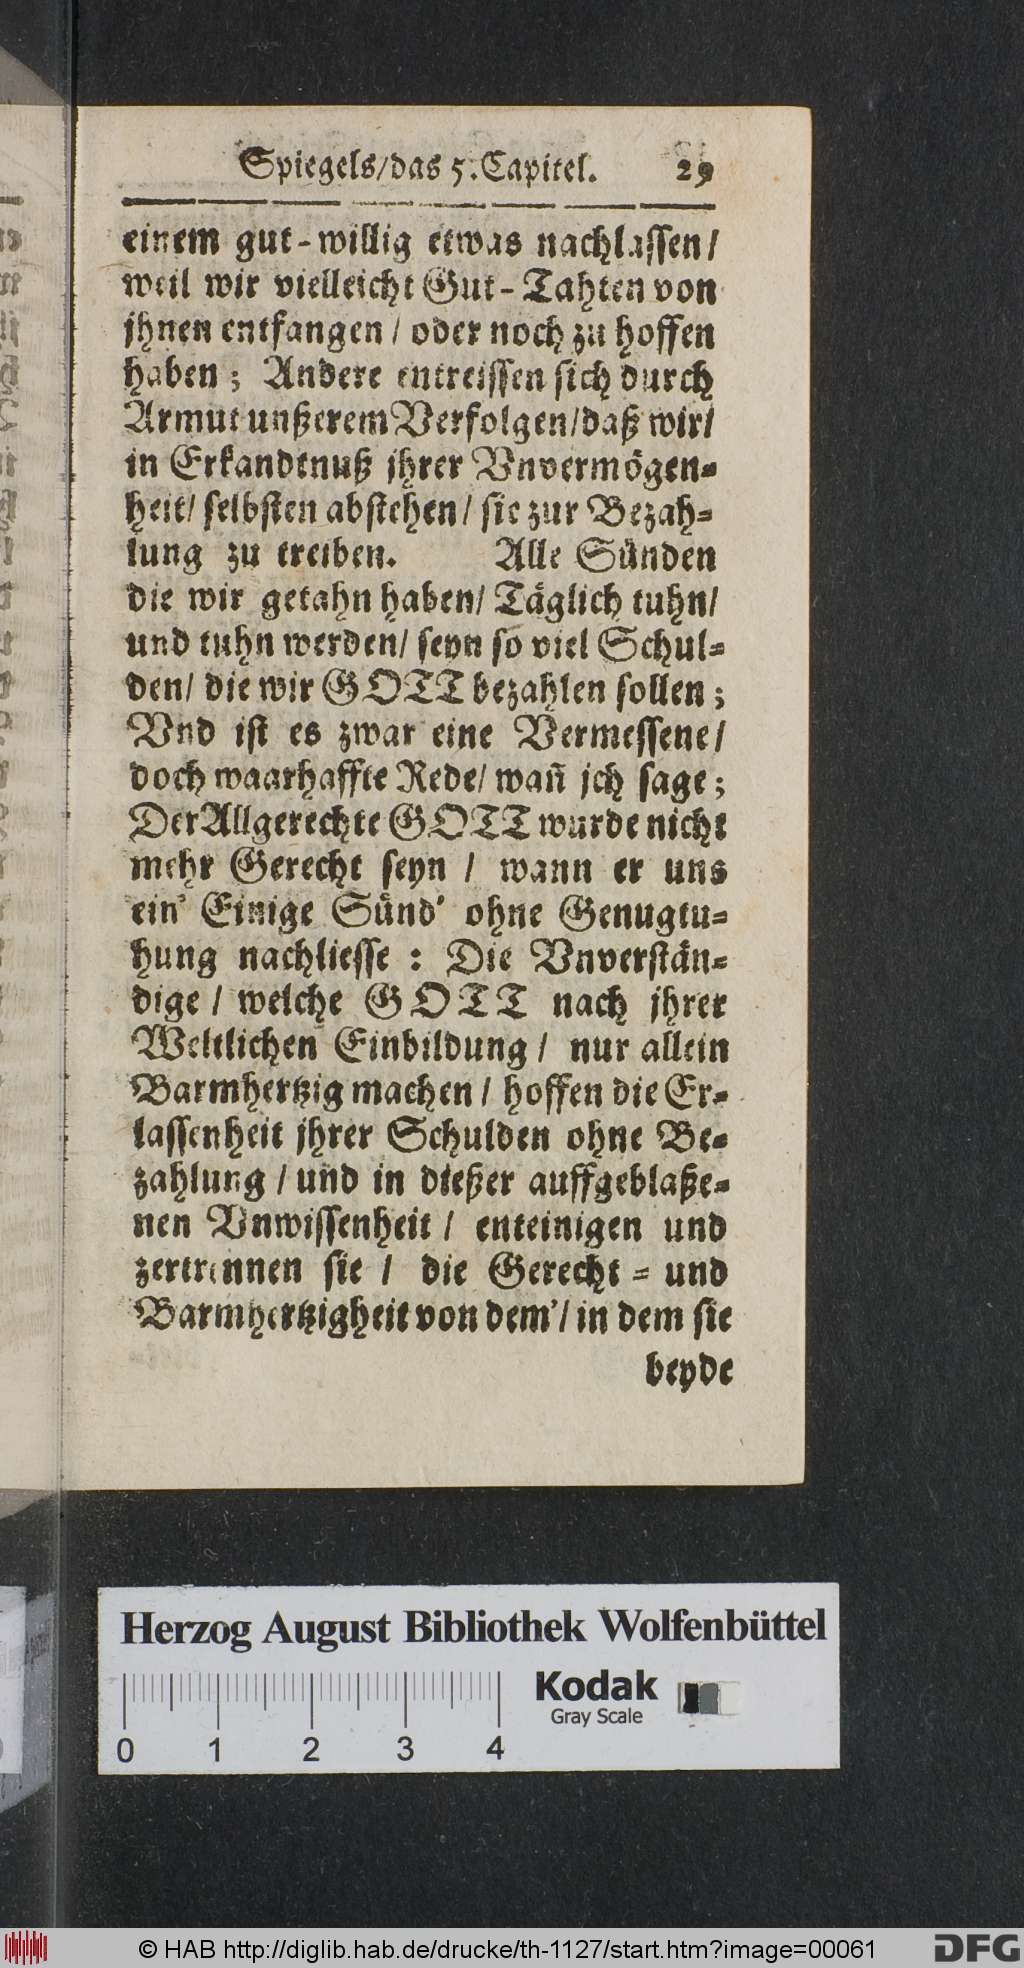 Spiegels/das 5. Capitel. 29
einem gut-willig etwas nachlassen/
weil wir vielleicht Gut-Tahten von
jhnen entfangen / oder noch zu hoffen
haben; Andere entreissen sich durch
Armut unßerem Verfolgen/daß wir/
in Erkandtnuß jhrer Vnvermögen-
heit/ selbsten abstehen/ sie zur Bezah-
lung zu treiben. Alle Sünden
die wir getahn haben/ Täglich tuhn/
und tuhn werden/ seyn so viel Schul-
den/ die wir GOTT bezahlen sollen;
Vnd ist es zwar eine Vermessene/
doch waarhaffte Rede/ wañ jch sage;
Der Allgerechte GOTT wurde nicht
mehr Gerecht seyn / wann er uns
ein' Einige Sünd' ohne Genugtu-
hung nachliesse : Die Vnverstän-
dige / welche GOTT nach jhrer
Weltlichen Einbildung / nur allein
Barmhertzig machen / hoffen die Er-
lassenheit jhrer Schulden ohne Be-
zahlung / und in dießer auffgeblaße-
nen Vnwissenheit / enteinigen und
zertrennen sie / die Gerecht- und
Barmhertzigheit von dem'/ in dem sie
beyde
Herzog August Bibliothek Wolfenbüttel
Kodak
Gray Scale
0 1 2 3 4
© HAB http://diglib.hab.de/drucke/th-1127/start.htm?image=00061
DFG